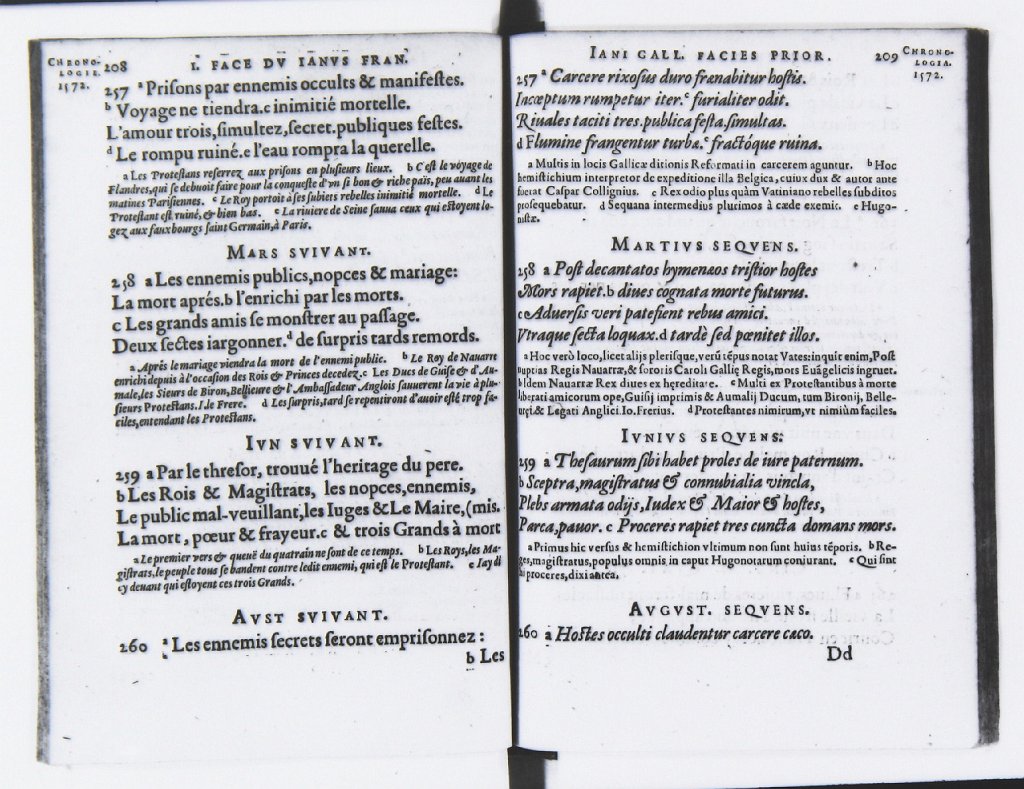 CHRONO-
LOGIE.
1572.
208
I. FACE DV IANVS FRAN.
257 ª Priſons par ennemis occults & manifeſtes.
ᵇ Voyage ne tiendra.c inimitié mortelle.
L'amour trois,ſimultez,ſecret.publiques feſtes.
ᵈ Le rompu ruiné.e l'eau rompra la querelle.
a Les Proteſtans reſerrez aux priſons en pluſieurs lieux. b C'eſt le voyage de
Flandres,qui ſe debuoit faire pour la conqueſte d'vn ſi bon & riche païs, peu auant les
matines Pariſiennes. c Le Roy portoit à ſes ſubiets rebelles inimitié mortelle. d Le
Proteſtant eſt ruiné,& bien bas. e La riuiere de Seine ſauua ceux qui eſtoyent lo-
gez aux fauxbourgs ſaint Germain,à Paris.
MARS SVIVANT.
258 a Les ennemis publics,nopces & mariage:
La mort aprés.b l'enrichi par les morts.
c Les grands amis ſe monſtrer au paſſage.
Deux ſectes iargonner.ᵈ de ſurpris tards remords.
a Aprés le mariage viendra la mort de l'ennemi public. b Le Roy de Nauarre
enrichi depuis à l'occaſion des Rois & Princes decedez. c Les Ducs de Guiſe & d'Au-
male,les Sieurs de Biron,Bellieure & l'Ambaſſadeur Anglois ſauuerent la vie à plu-
ſieurs Proteſtans. I. de Frere. d Les ſurpris,tard ſe repentiront d'auoir eſté trop fa-
ciles,entendant les Proteſtans.
IVN SVIVANT.
259 a Par le threſor, trouué l'heritage du pere.
b Les Rois & Magiſtrats, les nopces,ennemis,
Le public mal-veuillant,les Iuges & Le Maire,(mis.
La mort, pœur & frayeur.c & trois Grands à mort
a Le premier vers & queuë du quatrain ne ſont de ce temps. b Les Roys,les Ma-
giſtrats,le peuple tous ſe bandent contre ledit ennemi, qui eſt le Proteſtant. c I'ay di
cy deuant qui eſtoyent ces trois Grands.
AVST SVIVANT.
260 ª Les ennemis ſecrets ſeront empriſonnez :
b Les
IANI GALL. FACIES PRIOR.
209
CHRONO-
LOGIA.
1572.
257 ª Carcere rixoſus duro frænabitur hoſtis.
Incœptum rumpetur iter.ᶜ furialiter odit.
Riuales taciti tres.publica feſta.ſimultas.
d Flumine frangentur turbæ.ᵉ fractóque ruina.
a Multis in locis Gallicæ ditionis Reformati in carcerem aguntur. b Hoc
hemiſtichium interpretor de expeditione illa Belgica, cuius dux & autor ante
fuerat Caſpar Collignius. c Rex odio plus quàm Vatiniano rebelles ſubditos
proſequebatur. d Sequana intermedius plurimos à cæde exemit. e Hugo-
niſtæ.
MARTIVS SEQVENS.
258 a Poſt decantatos hymenæos triſtior hoſtes
Mors rapiet.b diues cognata morte futurus.
c Aduerſis veri patefient rebus amici.
Vtraque ſecta loquax.d tardè ſed pœnitet illos.
a Hoc verò loco,licet alijs pleriſque,verū tēpus notat Vates:inquit enim,Poſt
nuptias Regis Nauarræ,& ſororis Caroli Gallię Regis,mors Euāgelicis ingruet.
b Idem Nauarræ Rex diues ex hęreditate. c Multi ex Proteſtantibus à morte
liberati amicorum ope,Guiſij imprimis & Aumalij Ducum, tum Bironij, Belle-
urei,& Legati Anglici.Io.Frerius. d Proteſtantes nimirum,vt nimiùm faciles.
IVNIVS SEQVENS.
259 a Theſaurum ſibi habet proles de iure paternum.
b Sceptra,magiſtratus & connubialia vincla,
Plebs armata odijs, Iudex & Maior & hoſtes,
Parca,pauor. c Proceres rapiet tres cuncta domans mors.
a Primus hic verſus & hemiſtichion vltimum non ſunt huius tēporis. b Re-
ges,magiſtratus,populus omnis in caput Hugonotarum coniurant. c Qui ſint
ij proceres,dixi antea.
AVGVST. SEQVENS.
260 a Hoſtes occulti claudentur carcere cæco.
Dd